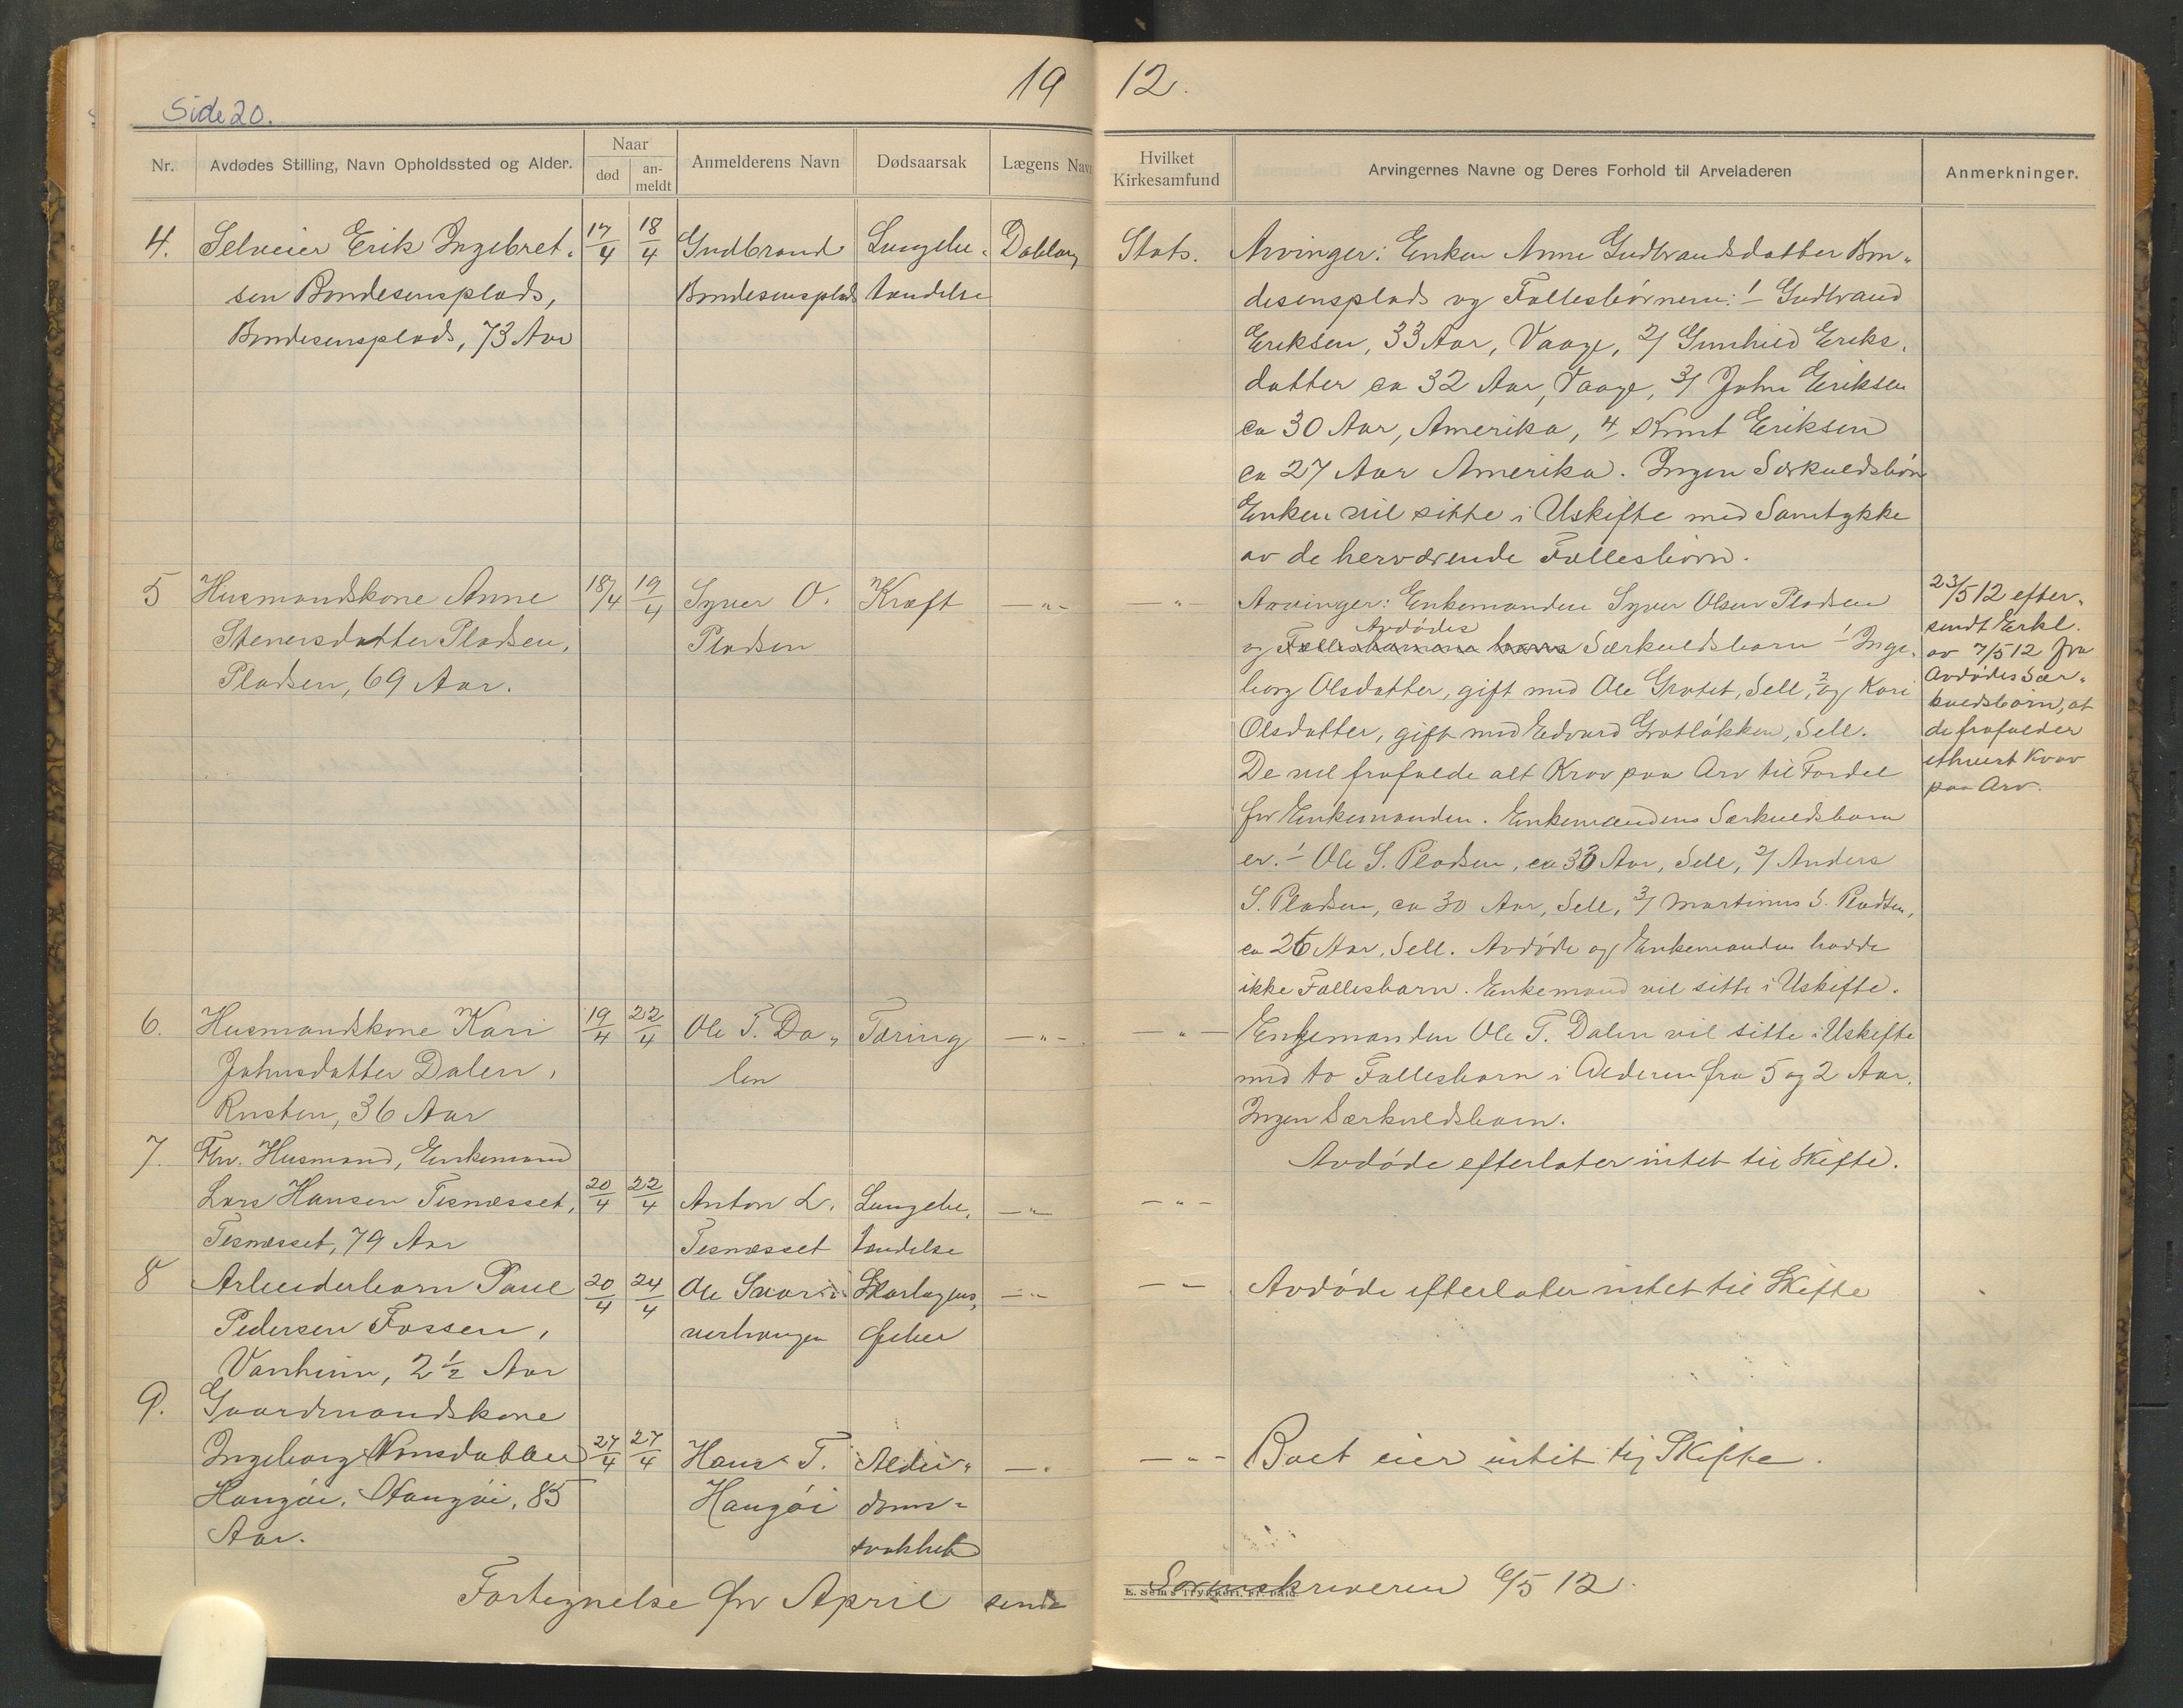 19 12.
Side 20.
Nr.
Avdødes Stilling, Navn Opholdssted og Alder.
Naar
død
an-
meldt
Anmelderens Navn
Dødsaarsak
Lægens Navn
Hvilket
Kirkesamfund
Arvingernes Navne og Deres Forhold til Arveladeren
Anmerkninger.
4. Selveier Erik Ingebret-
sen Bondesensplads,
Bondesensplads, 73 Aar
17/4 18/4
Gudbrand
Bondesensplads
Lungebe-
tændelse
Stats.
Arvinger: Enken Anne Gudbrandsdatter Bon-
desensplads og Fællesbørnene: 1/ Gudbrand
Eriksen, 33 Aar, Vaage, 2/ Gunhild Eriks.
datter ca 32 Aar, Vaage, 3/ John Eriksen
ca 30 Aar, Amerika, 4/ Knut Eriksen
ca 27 Aar Amerika. Ingen Særkuldsbørn
Enken vil sitte i Uskifte med Samtykke
av de herværende Fællesbørn.
5 Husmandskone Anne
Stenersdatter Pladsen,
Pladsen, 69 Aar.
18/4 19/4
Syver O.
Pladsen
Kræft
— " —
— " —
Arvinger: Enkemanden Syver Olsen Pladsen
Avdødes
og Særkuldsbarn 1/ Inge-
borg Olsdatter, gift med Ole Grøtet, Sell, 2/ og Kari
Olsdatter, gift med Edvard Grøtløkken, Sell.
De vil frafalde alt Krav paa Arv til Fordel
for Enkemanden. Enkemandens Særkuldsbarn
er. 1/ Ole S. Pladsen, ca 33 Aar, Sell, 2/ Anders
S. Pladsen, ca 30 Aar, Sell, 3/ Martinus S. Pladsen,
ca 26 Aar, Sell. Avdøde og Enkemanden hadde
ikke Fællesbarn. Enkemand vil sitte i Uskifte.
23/5 12 efter-
sendt Erkl.
av 7/5 12 fra
Avdødes Sær-
kuldsbørn, at
de frafalder
ethvert Krav
paa Arv.
6. Husmandskone Kari
Johnsdatter Dalen,
Rusten, 36 Aar
19/4 22/4
Ole T. Da-
len
Tæring
— " —
— " —
Enkemanden Ole T. Dalen vil sitte i Uskifte
med to Fællesbarn i Alderen fra 5 og 2 Aar.
Ingen Særkuldsbarn.
7. Fhv. Husmand, Enkemand
Lars Hansen Tesnæsset,
Tesnæsset, 79 Aar
20/4 22/4
Anton L.
Tesnæsset
Lungebe-
tændelse
— " —
— " —
Avdøde efterlater intet til Skifte.
8 Arbeiderbarn Paul
Pedersen Fossen,
Vanheim, 2 1/2 Aar
20/4 24/4
Ole
Skarlagens-
feber
— " —
— " —
Avdøde efterlater intet til Skifte
9. Gaardmandskone
Ingeborg
Haugøi, Haugøi, 85
Aar.
27/4 27/4
Hans T.
Haugøi
Alder-
doms-
svakhet
— "
— " —
Boet eier intet til Skifte.
Fortegnelse for April sendt Sorenskriveren 6/5 12.